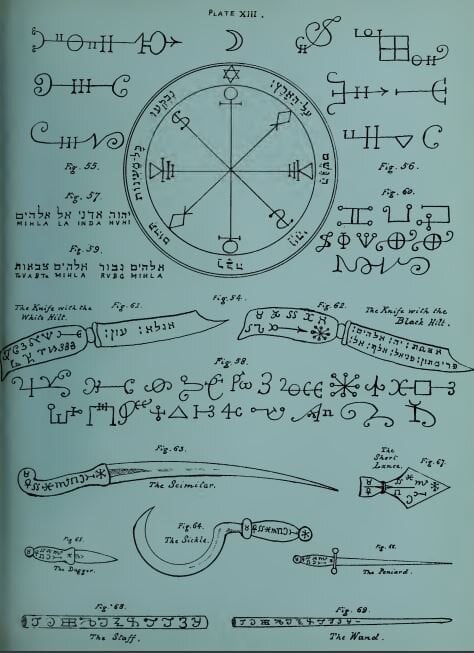 PLATE XIII.
נבקעו
על הארץ:
כל מעינות
הגשם
תהום
ויהי
רבה
Fig. 55.
Fig. 56.
Fig. 57.
Fig. 60.
יהוה אדני אל אלהים
MIHLA LA INDA HVHI
Fig. 59.
אלהים גבור אלהים צבאות
MIHLA RVBG MIHLA
The Knife with the
White Hilt.
Fig. 61.
Fig. 54.
Fig. 62.
The Knife with the
Black Hilt.
אגלא: עון:
Fig. 58.
Fig. 63.
The Scimitar.
The
Short
Lance.
Fig. 67.
Fig. 64.
The Sickle.
Fig. 65.
The Dagger.
The Poniard.
Fig. 68.
The Staff.
Fig. 69.
The Wand.